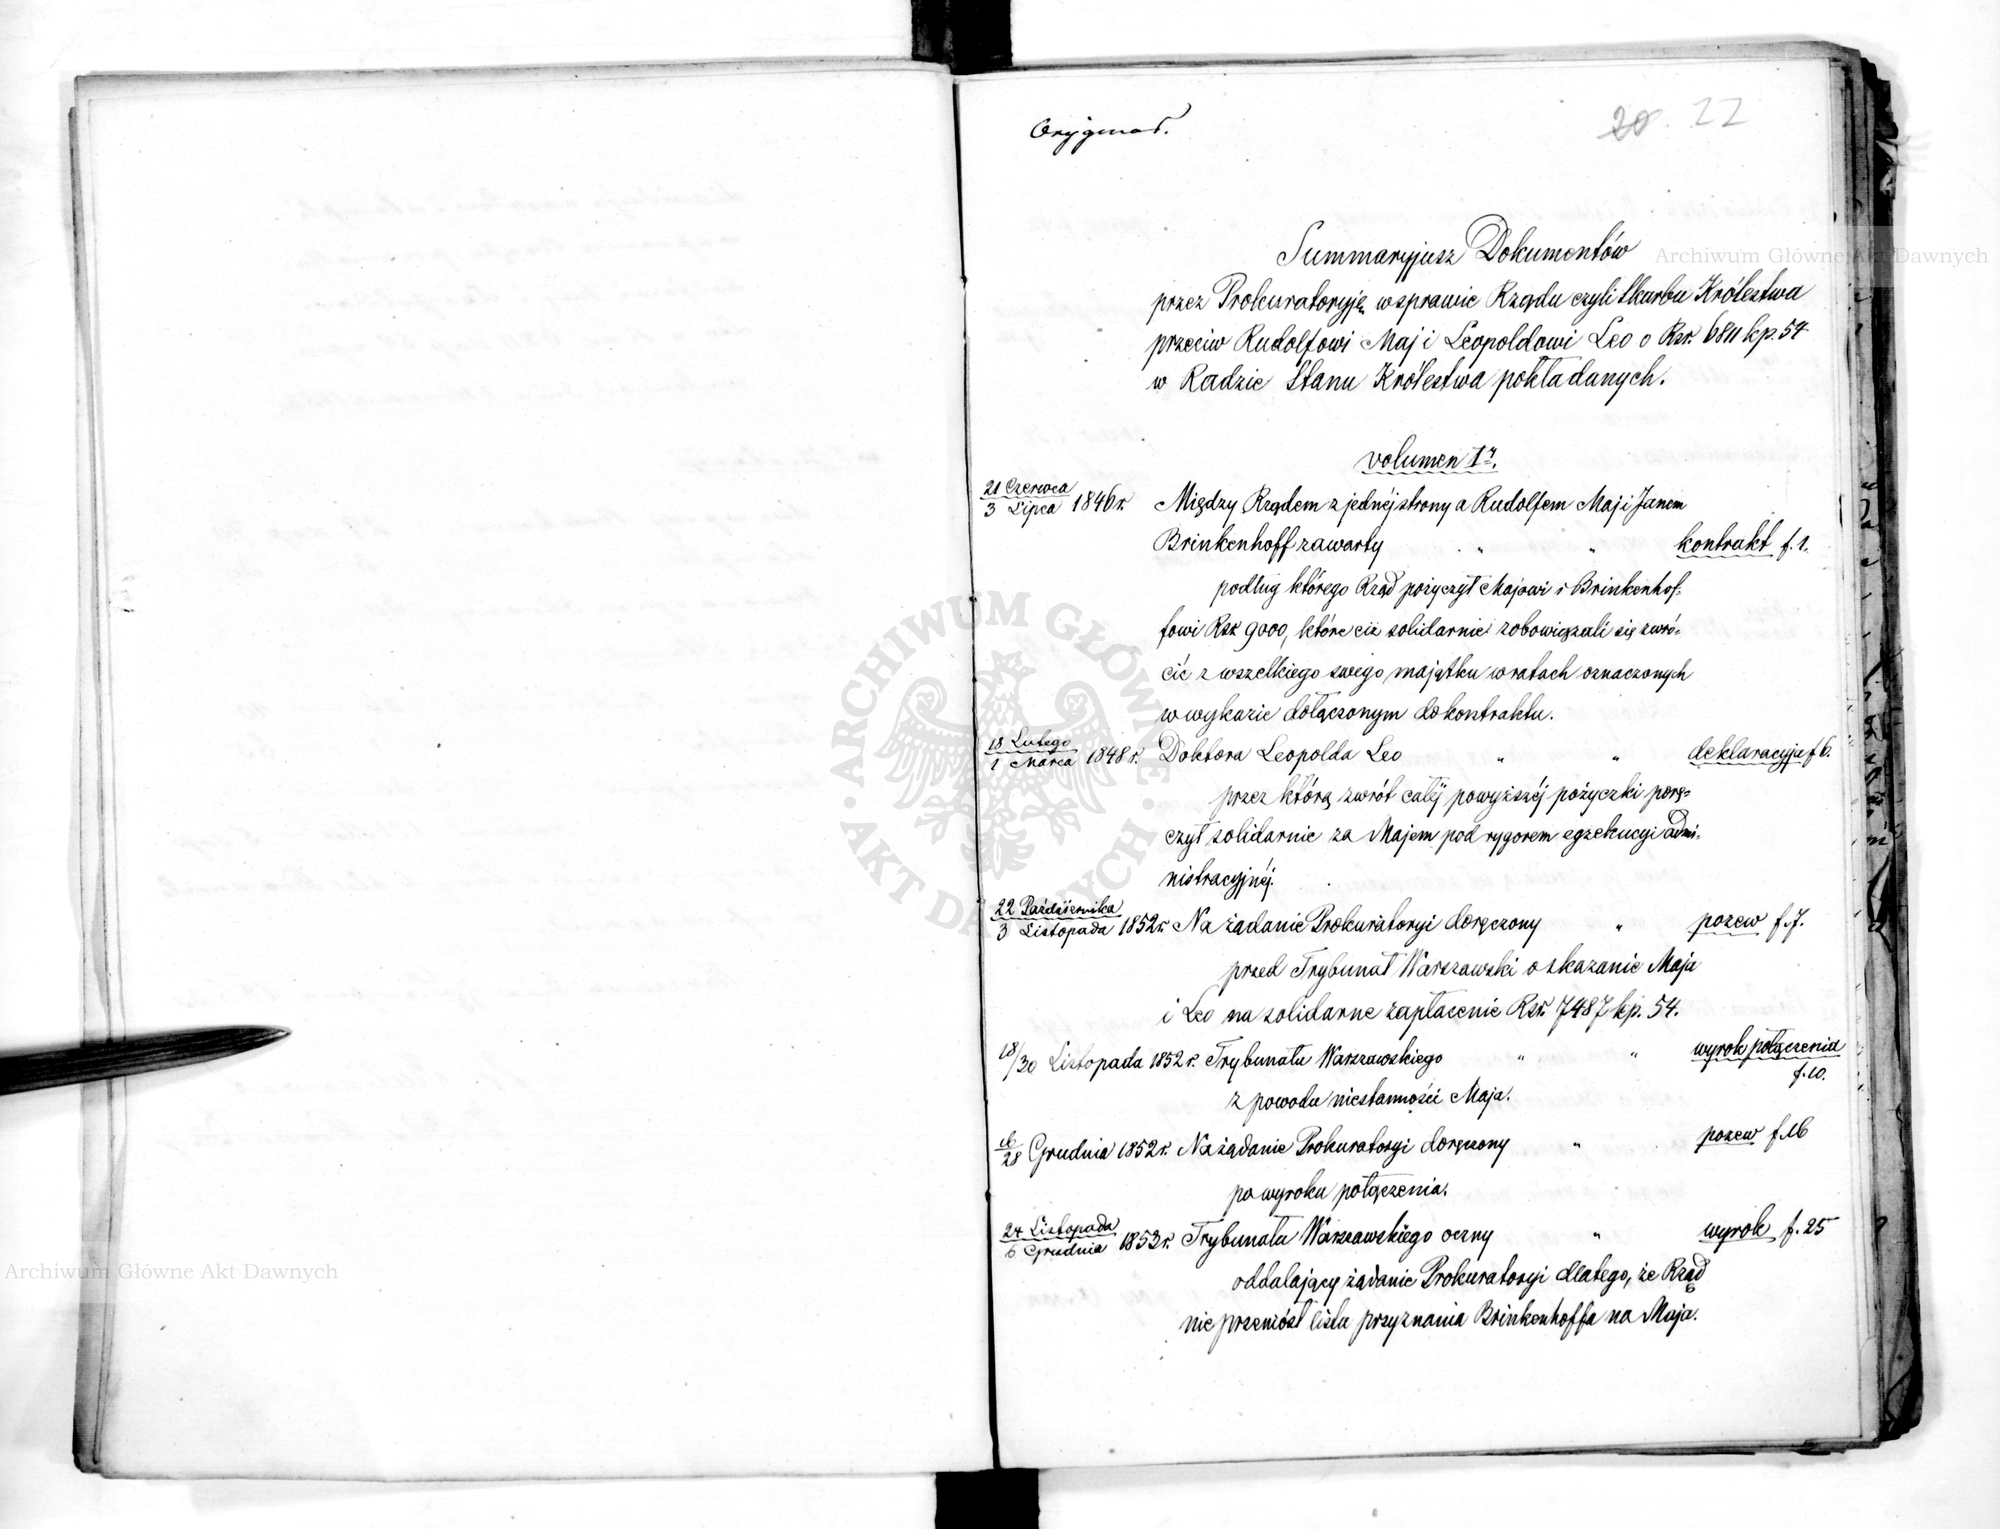 Oryginał.
20. 22
Summaryjusz Dokumentów
przez Prokuratoryję w sprawie Rządu czyli Skarbu Królestwa
przeciw Rudolfowi Maj i Leopoldowi Leo o Rsr. 6811 kp. 54
w Radzie Stanu Królestwa pokładanych.
volumen 1ⁿ.
21 Czerwca
3 Lipca 1846 r. Między Rządem z jednéj strony a Rudolfem Maj i Janem
Brinkenhoff zawarty " " kontrakt f. 1.
podług którego Rząd pożyczył Majowi i Brinkenhof-
fowi Rsr 9000, które ciż solidarnie zobowiązali się zwró-
cić z wszelkiego swego majątku w ratach oznaczonych
w wykazie dołączonym do kontraktu.
18 Lutego
1 Marca 1848 r. Doktora Leopolda Leo " " deklaracyja f 6.
przez którą zwrót całéj powyższéj pożyczki porę-
czył solidarnie za Majem pod rygorem egzekucyi admi-
nistracyjnéj.
22 Października
3 Listopada 1852 r. Na żądanie Prokuratoryi doręczony " pozew f. 7.
przed Trybunał Warszawski o skazanie Maja
i Leo na solidarne zapłacenie Rsr. 7487 kp. 54.
18/30 Listopada 1852 r. Trybunału Warszawskiego " " wyrok połączenia
f. 10.
z powodu niestanności Maja.
16/28 Grudnia 1852 r. Na żądanie Prokuratoryi doręczony " pozew f. 16
po wyroku połączenia.
24 Listopada
6 Grudnia 1853 r. Trybunału Warszawskiego oczny " wyrok f. 25
oddalający żądanie Prokuratoryi dlatego, że Rząd
nie przeniósł listu przyznania Brinkenhoffa na Maja.
Archiwum Główne Akt Dawnych
Archiwum Główne Akt Dawnych
ARCHIWUM GŁÓWNE
AKT DAWNYCH